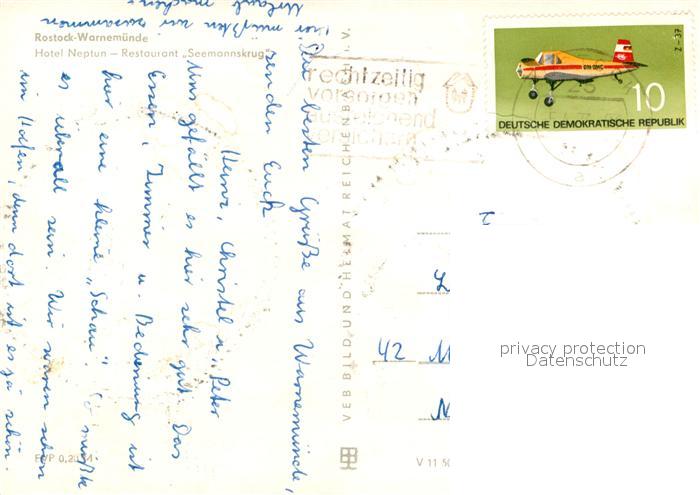 Rostock-Warnemünde
Hotel Neptun — Restaurant „Seemannskrug"
Die besten Grüße aus Warnemünde,
senden Euch
Heinz, Christel u. Peter
Uns gefällt es hier sehr gut. Das
Essen, Zimmer u. Bedienung ist
hier eine kleine „Schau". So müßte
es überall sein. Wir waren schon
im Hafen, denn dort ist es ja schön.
Hier müßten wir zusammen
Urlaub machen.
EVP 0,20 M
VEB BILD UND HEIMAT REICHENBACH i. V.
V 11 50
rechtzeitig
vorsorgen
Z-37
DM-SMC
10
DEUTSCHE DEMOKRATISCHE REPUBLIK
23
a
2
L
42 M
N
privacy protection
Datenschutz